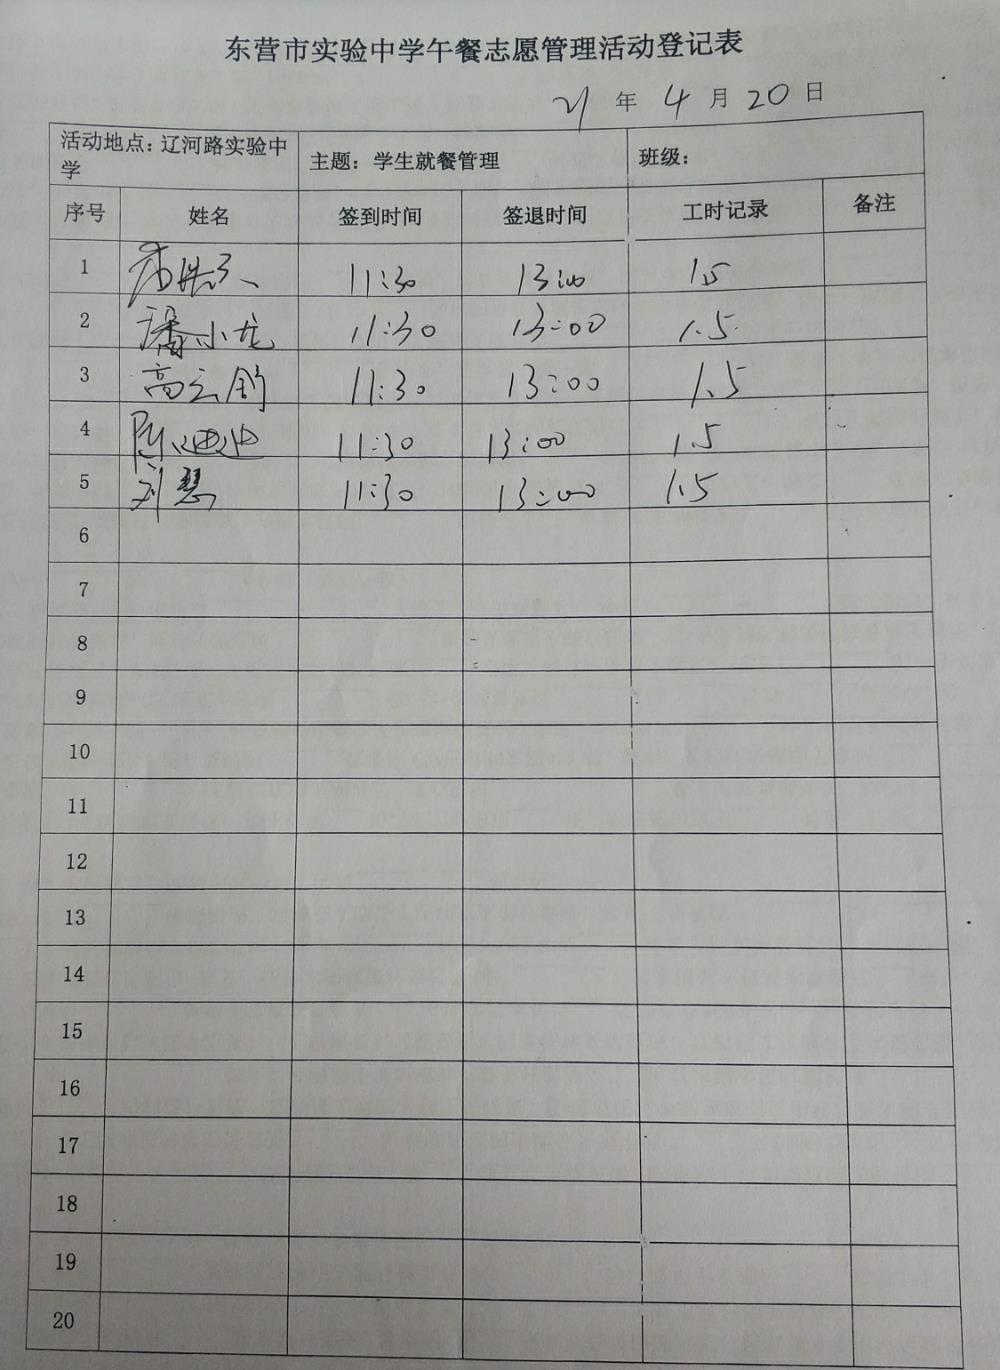 东营市实验中学午餐志愿管理活动登记表
21 年 4 月 20 日
活动地点：辽河路实验中学 主题：学生就餐管理 班级：
序号 姓名 签到时间 签退时间 工时记录 备注
1 11:30 13:00 1.5
2 潘小龙 11:30 13:00 1.5
3 高云鹤 11:30 13:00 1.5
4 11:30 13:00 1.5
5 刘慧 11:30 13:00 1.5
6
7
8
9
10
11
12
13
14
15
16
17
18
19
20